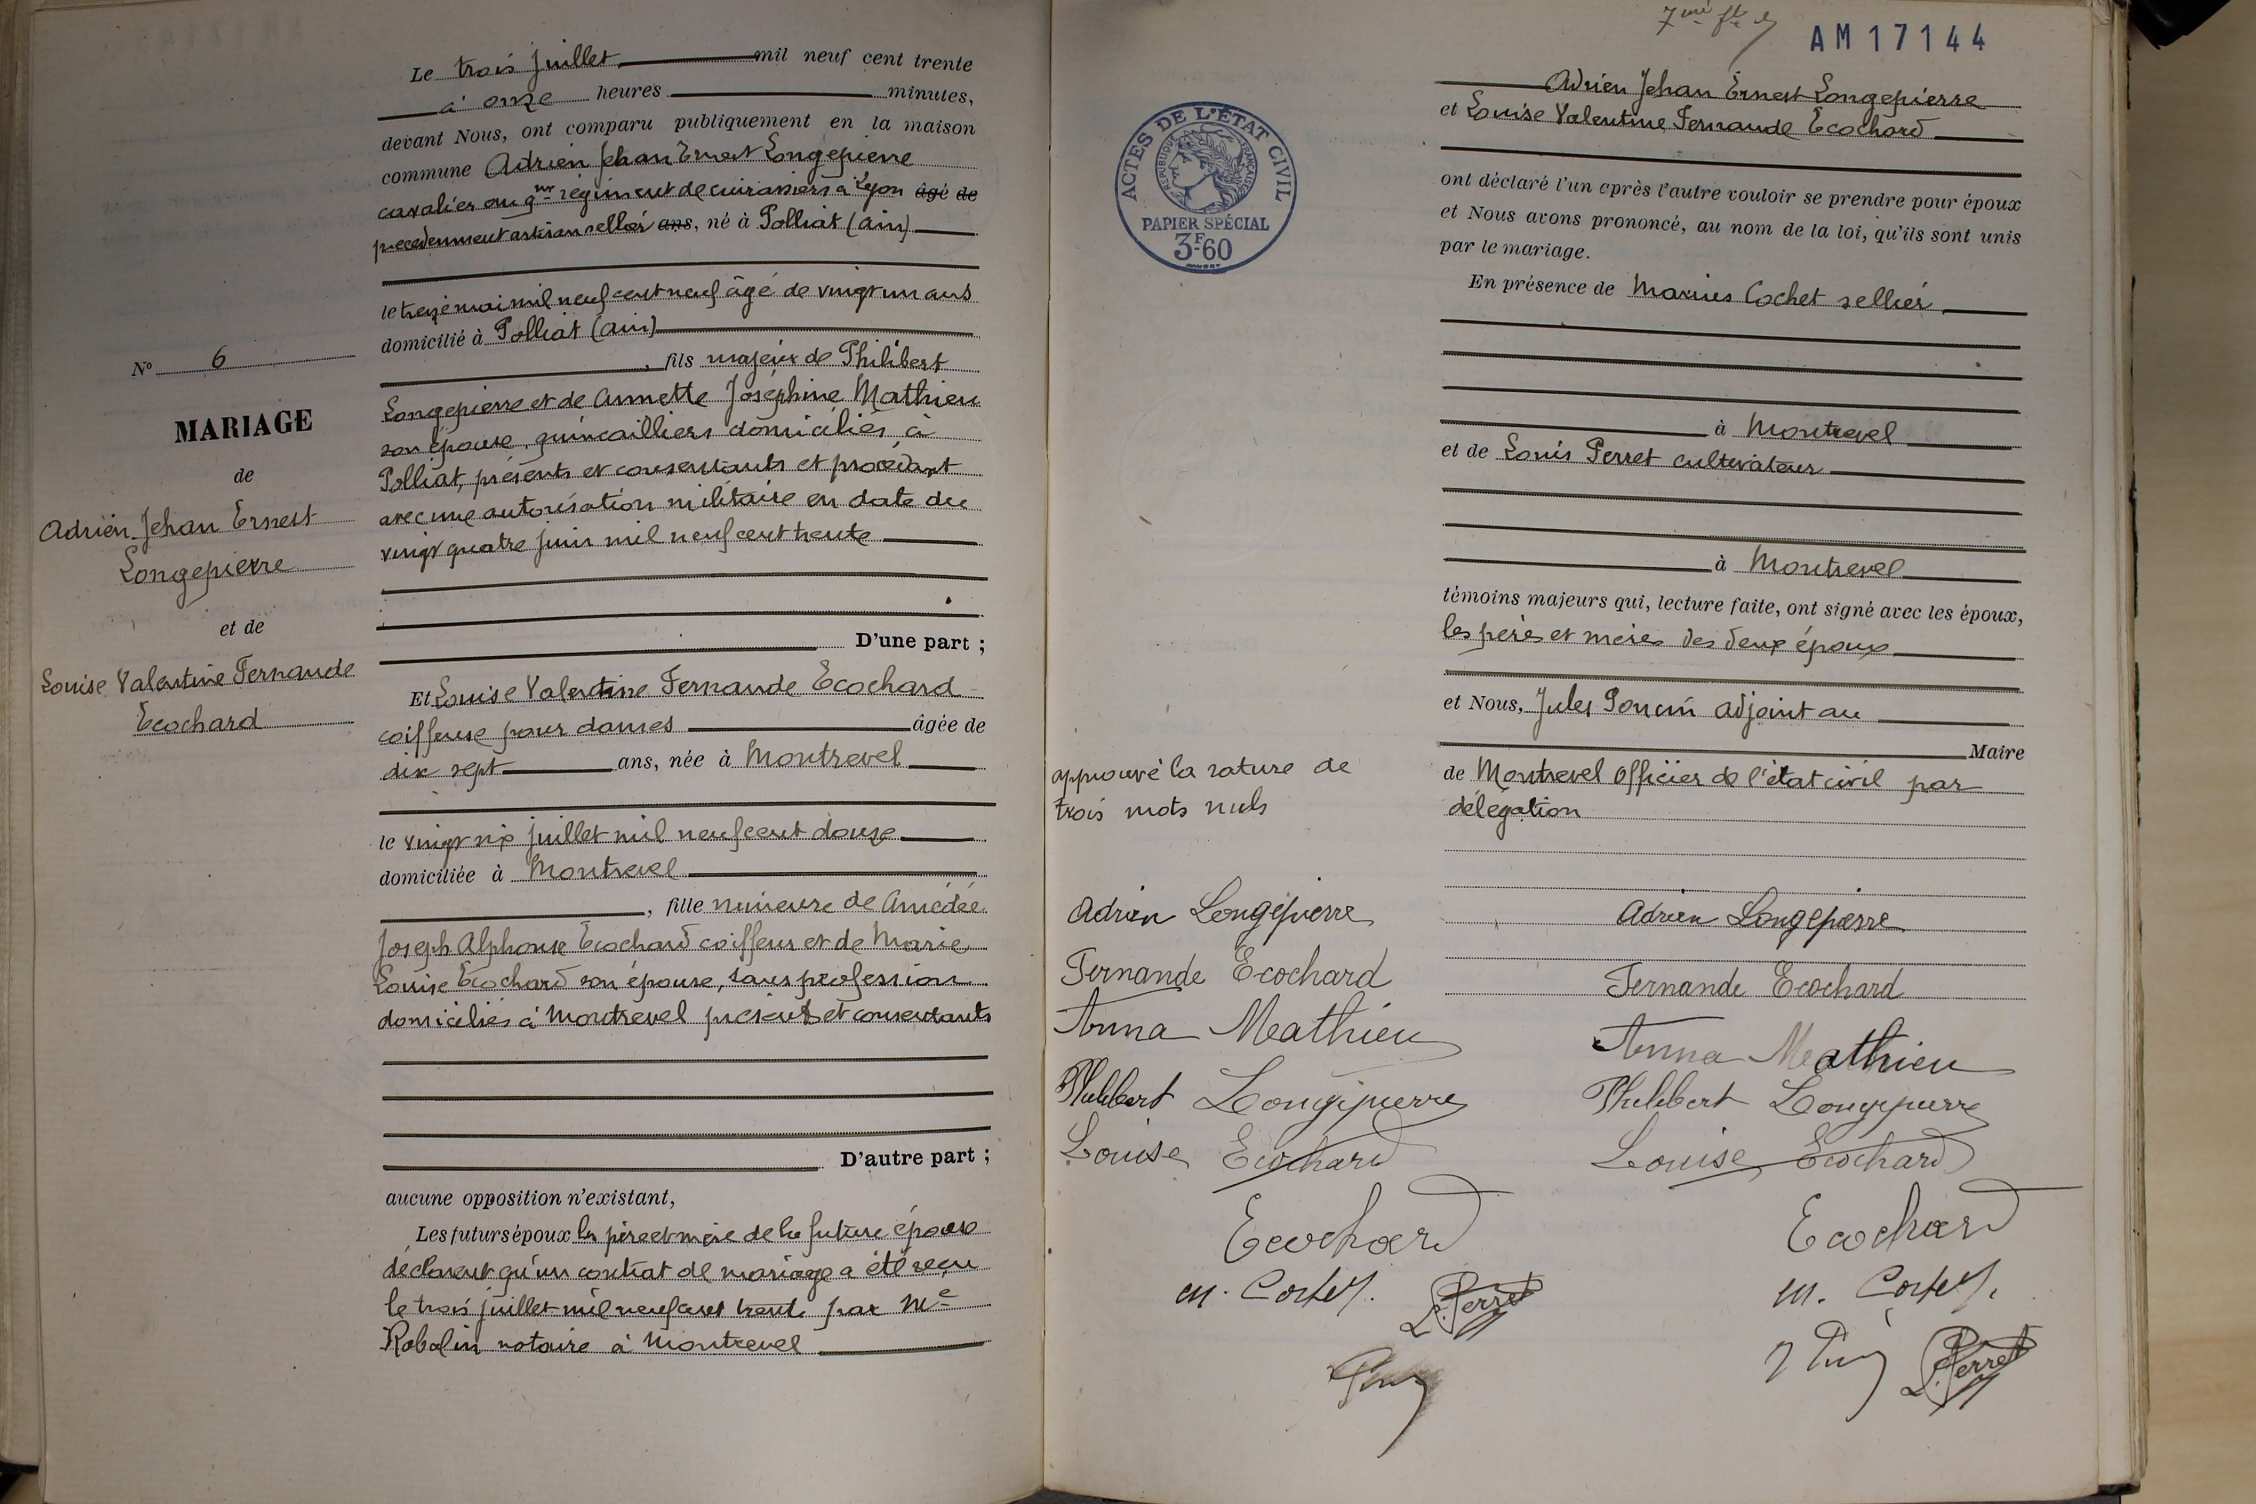 Le trois juillet mil neuf cent trente
à onze heures minutes,
devant Nous, ont comparu publiquement en la maison
commune Adrien Jehan Ernest Longepierre
cavalier au 9me régiment de cuirassiers à Lyon âgé de
précédemment artisan sellier ans, né à Polliat (Ain)
le treize mai mil neuf cent neuf âgé de vingt un ans
domicilié à Polliat (Ain)
, fils majeur de Philibert
Longepierre et de Annette Joséphine Mathieu
son épouse, quincailliers domiciliés à
Polliat, présents et consentants et procédant
avec une autorisation militaire en date du
vingt quatre juin mil neuf cent trente
D'une part ;
Et Louise Valentine Fernande Ecochard
coiffeuse pour dames âgée de
dix sept ans, née à Montrevel
le vingt six juillet mil neuf cent douze
domiciliée à Montrevel
, fille mineure de Amédée
Joseph Alphonse Ecochard coiffeur et de Marie
Louise Ecochard son épouse, sans profession
domiciliés à Montrevel présents et consentants
D'autre part ;
aucune opposition n'existant,
Les futurs époux les père et mère de la future épouse
déclarent qu'un contrat de mariage a été reçu
le trois juillet mil neuf cent trente par Me
Robalin notaire à Montrevel
No 6
MARIAGE
de
Adrien Jehan Ernest
Longepierre
et de
Louise Valentine Fernande
Ecochard
7me
AM17144
ACTES DE L'ÉTAT CIVIL
REPUBLIQUE FRANÇAISE
PAPIER SPÉCIAL
3F-60
Adrien Jehan Ernest Longepierre
et Louise Valentine Fernande Ecochard
ont déclaré l'un après l'autre vouloir se prendre pour époux
et Nous avons prononcé, au nom de la loi, qu'ils sont unis
par le mariage.
En présence de Marius Cochet sellier
à Montrevel
et de Louis Perret cultivateur
à Montrevel
témoins majeurs qui, lecture faite, ont signé avec les époux,
les pères et mères des deux époux
et Nous, Jules Poncin adjoint au
Maire
de Montrevel Officier de l'état civil par
délégation
approuvé la rature de
trois mots nuls
Adrien Longepierre
Fernande Ecochard
Anna Mathieu
Philibert Longepierre
Louise Ecochard
Ecochard
L. Perret
Adrien Longepierre
Fernande Ecochard
Anna Mathieu
Philibert Longepierre
Louise Ecochard
Ecochard
L. Perret